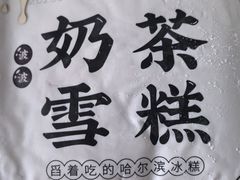 波波
奶茶
雪糕
舀着吃的哈尔滨冰糕